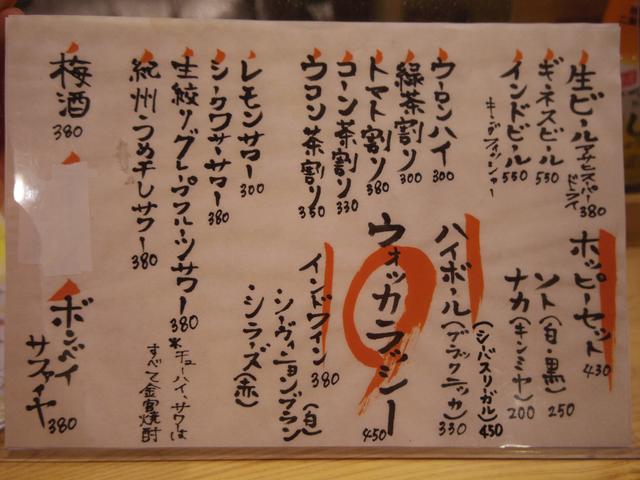 生ビール アサヒスーパードライ 380
ギネスビール 550
インドビール 550
キングフィッシャー
ウーロンハイ 300
緑茶割り 300
トマト割り 380
コーン茶割り 330
ウコン茶割り 350
レモンサワー 300
シークワーサーサワー 380
生絞りグレープフルーツサワー 380
紀州うめ干しサワー 380
梅酒 380
ホッピーセット 430
ソト(白・黒) 250
ナカ(キンミヤ) 200
ハイボール(シーバスリーガル) 450
(ブラックニッカ) 330
ウォッカラッシー 450
インドワイン 380
シーヴィニョンブラン(白)
シラーズ(赤)
※チューハイ、サワーは
すべて金宮焼酎
ボンベイ
サファイヤ 380